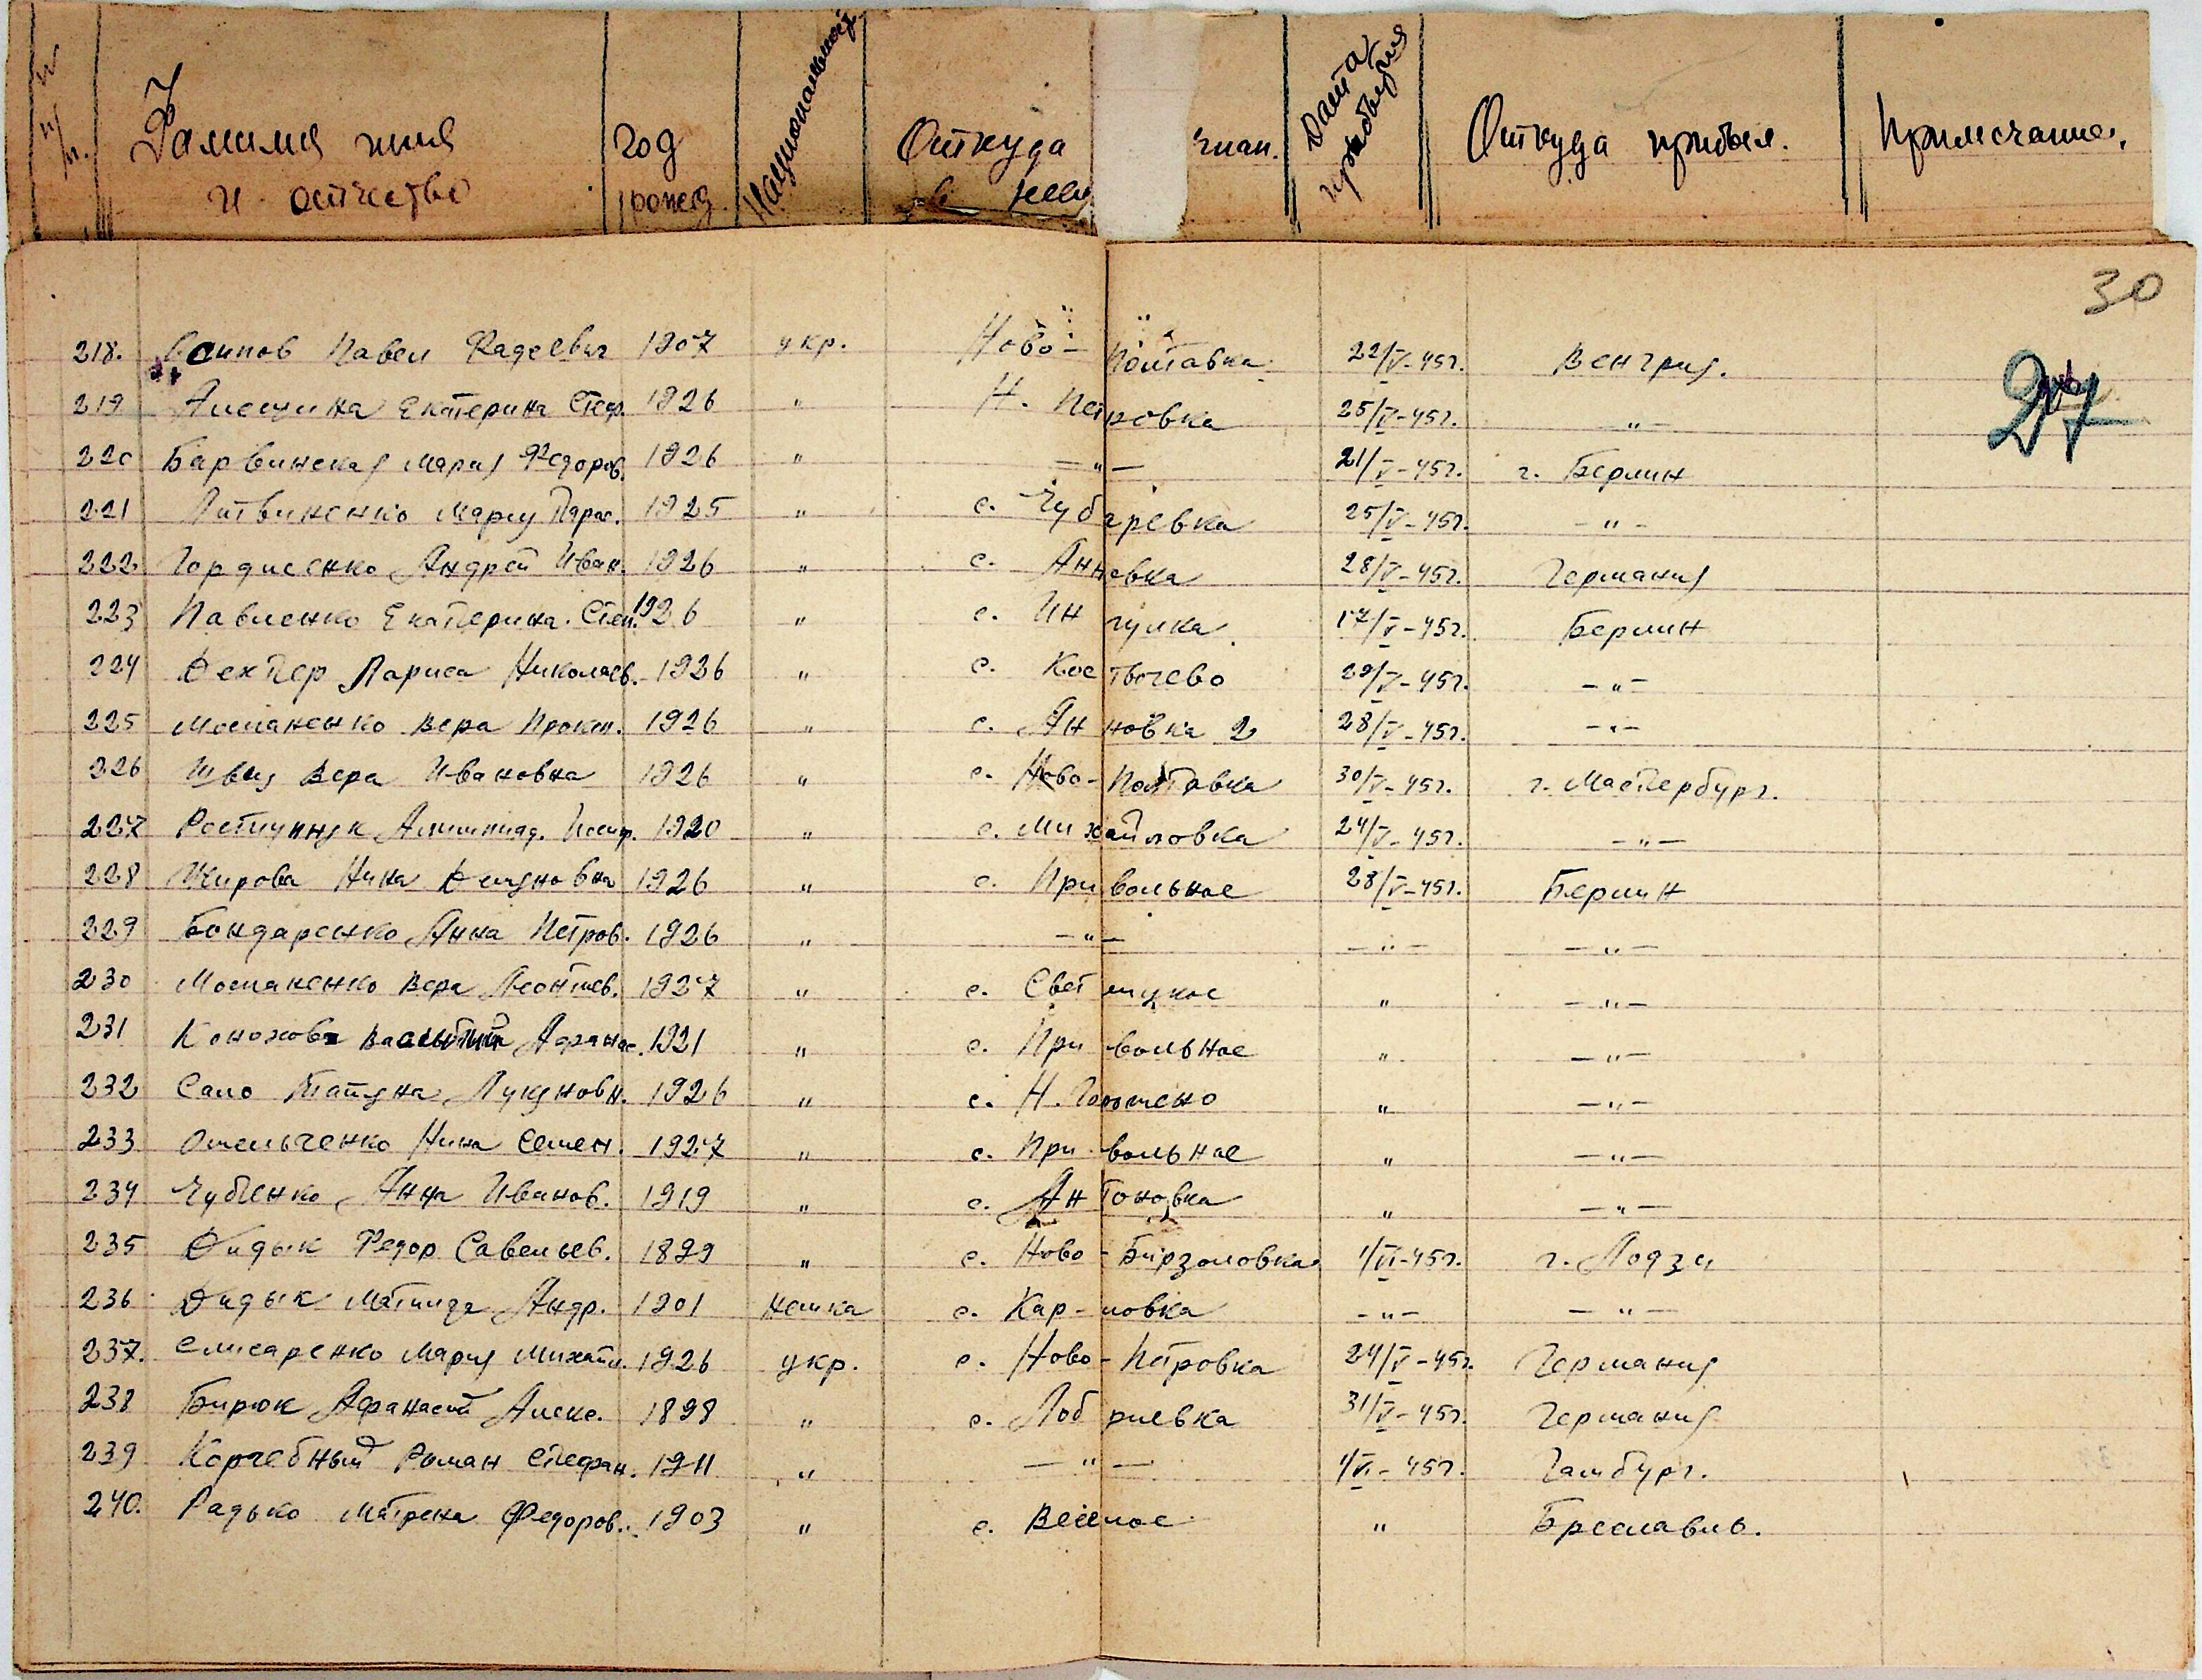 № п/п. Фамилия имя и отчество Год рожд. Национальность Откуда Дата прибытия Откуда прибыл. Примечание.
30
27
218. Осипов Павел Фадеевич 1907 укр. Ново-Полтавка 22/V-45г. Венгрия.
219 Алещина Екатерина Стеф. 1926 " Н. Петровка 25/V-45г. "
220 Барвинская Мария Федоров. 1926 " —"— 21/V-45г. г. Берлин
221 Литвиненко Мария Парас. 1925 " с. Чубаревка 25/V-45г. —"—
222 Гордиенко Андрей Иван. 1926 " с. Анновка 28/V-45г. Германия
223 Павленко Екатерина Степ. 1926 " с. Ингулка 17/V-45г. Берлин
224 Дехтер Лариса Николаев. 1926 " с. Костычево 29/V-45г. —"—
225 Мошаненко Вера Прокоп. 1926 " с. Анновка 2 28/V-45г. —"—
226 Швец Вера Ивановна 1926 " с. Ново-Полтавка 30/V-45г. г. Мастербург.
227 1920 " с. Михайловка 24/V-45г. —"—
228 Жирова Нина Демяновна 1926 " с. Привольное 28/V-45г. Берлин
229 Бондаренко Анна Петров. 1926 " —"— —"— —"—
230 Мошаненко Вера Леонтиев. 1927 " с. " —"—
231 Афанас. 1921 " с. Привольное " —"—
232 Сало Татяна Лукяновн. 1926 " с. Н. " —"—
233 Омельченко Нина Семен. 1927 " с. Привольное " —"—
234 Чубенко Анна Иванов. 1919 " с. Антоновка " —"—
235 Дидык Федор Савельев. 1899 " с. Ново-Бирзоловка 1/VI-45г. г. Лодзи
236 Дидык Матильда Андр. 1901 немка с. Карловка —"— —"—
237. Слисаренко Мария Михайл. 1926 укр. с. Ново-Петровка 24/V-45г. Германия
238 Бирюк Афанасий Алекс. 1898 " с. Лобриевка 31/V-45г. Германия
239 Корчебный Роман Стефан. 1911 " —"— 1/VI-45г. Гамбург.
240. Радько Матрена Федоров. 1903 " с. Веселое " Бреславль.